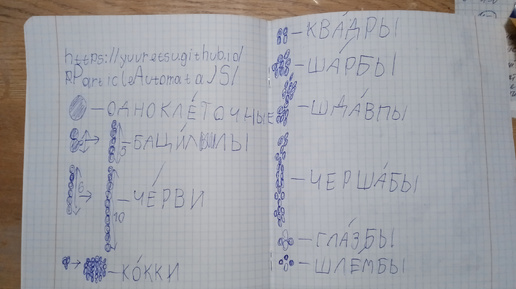 https://yuuretsugithub.id/
RParticleAutomata/5/
ОДНОКЛЕ́ТОЧНЫЕ
БАЦИ́ЛЛЫ
5
ЧЕ́РВИ
6
10
КО́ККИ
КВА́ДРЫ
ША́РБЫ
ШДА́ВПЫ
ЧЕРША́БЫ
ГЛА́ЗБЫ
ШЛЕ́МБЫ